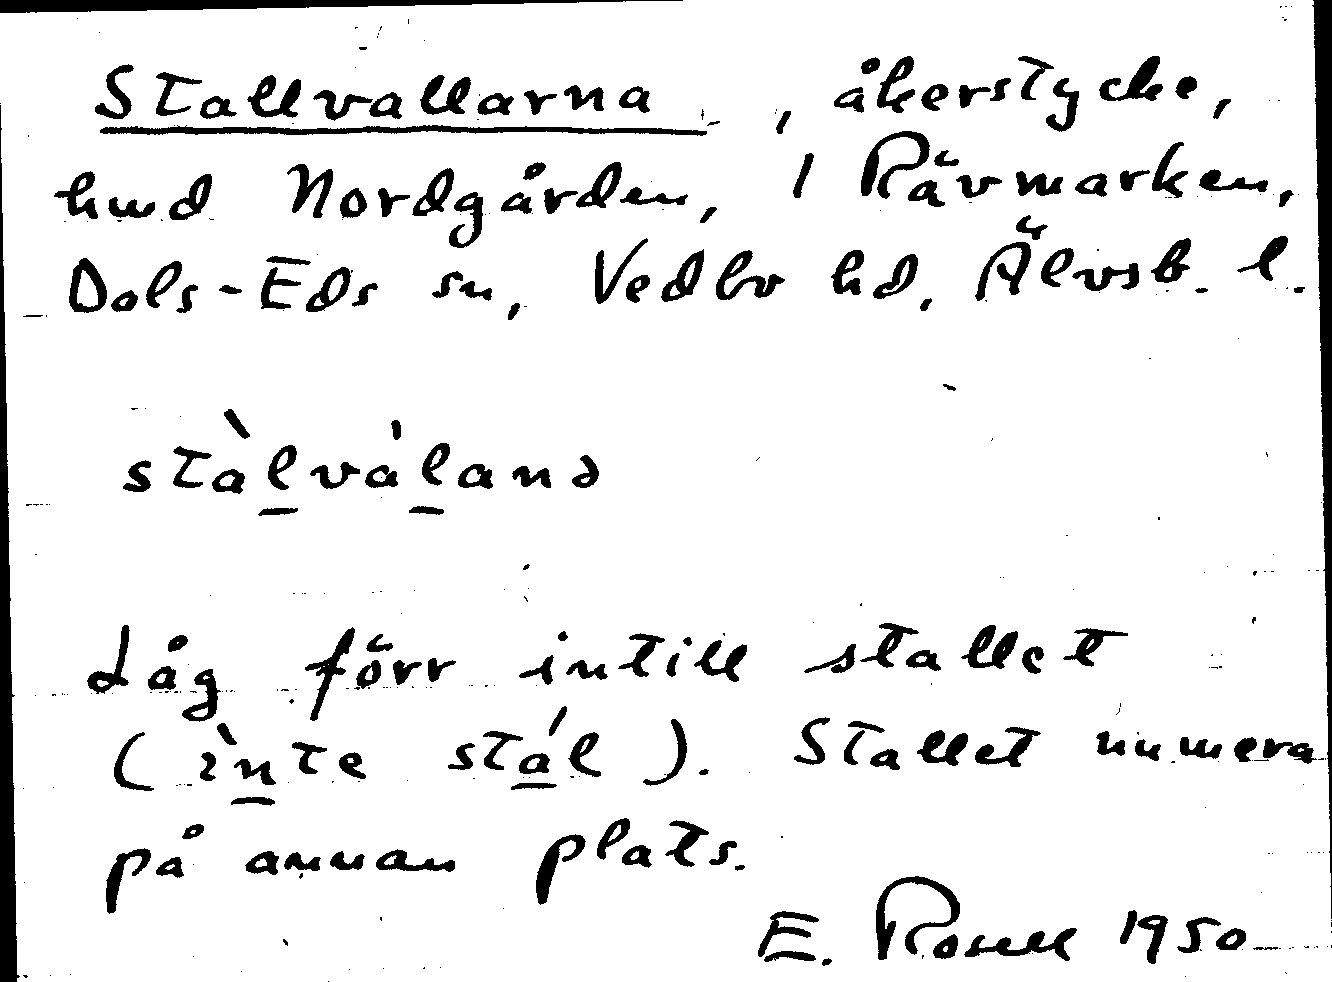 Stallvallarna, åkerstycke,
hmd Nordgården, 1 Rävmarken,
Dals-Eds sn, Vedbo hd, Älvsb. l.
stàlvàlanə
Låg förr intill stallet
(ìnte stál). Stallet numera
på annan plats.
E. Rosell 1950